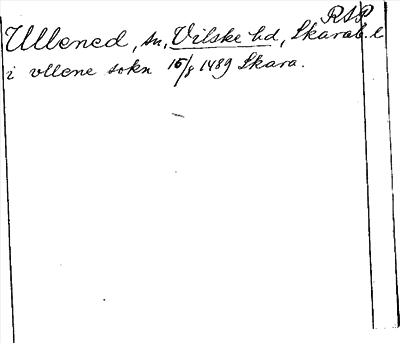 RSP
Ullened, sn, Vilske hd, Skarab. l
i vllene sokn 15/8 1489 Skara.